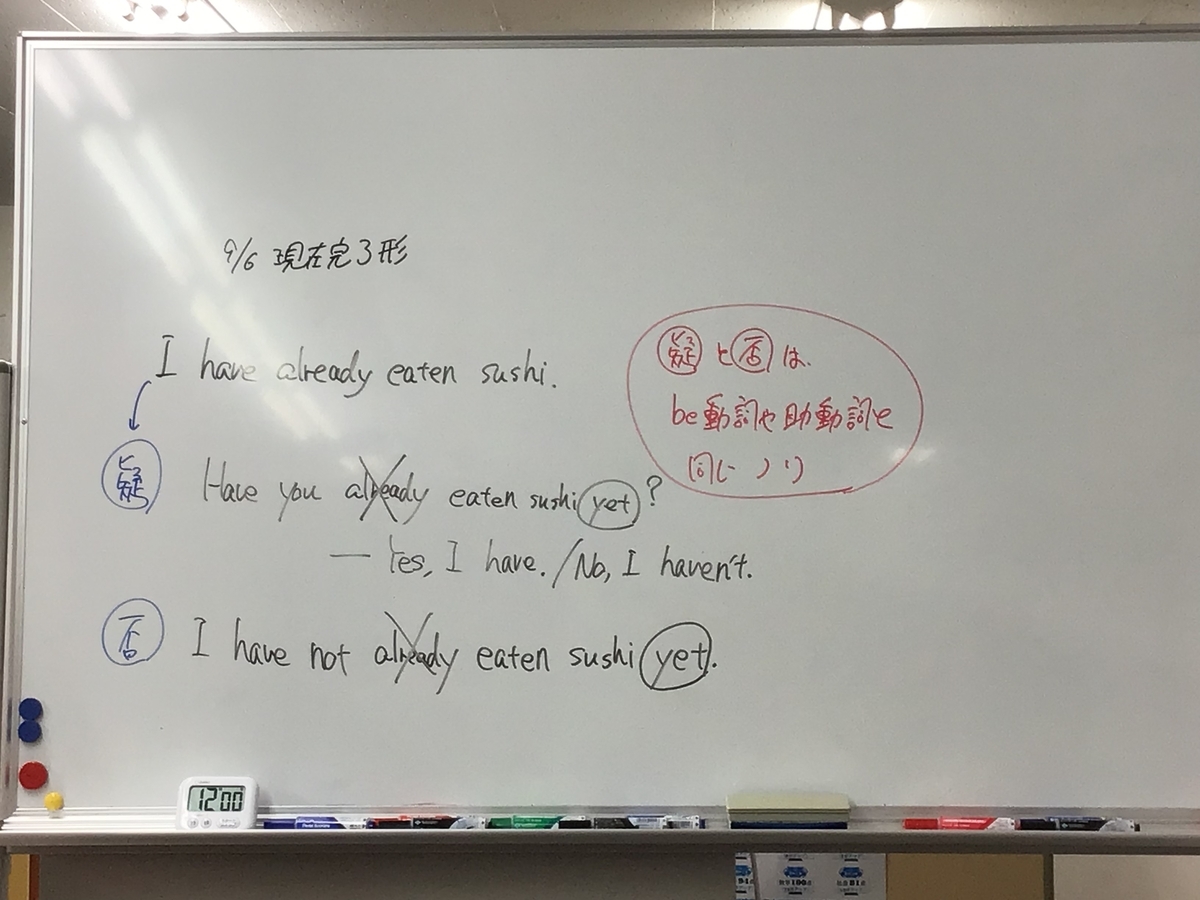 9/6 現在完了形
I have already eaten sushi.
疑 と 否 は、
be動詞や助動詞と
同じノリ
疑 Have you already eaten sushi yet?
— Yes, I have. / No, I haven't.
否 I have not already eaten sushi yet.
12:00